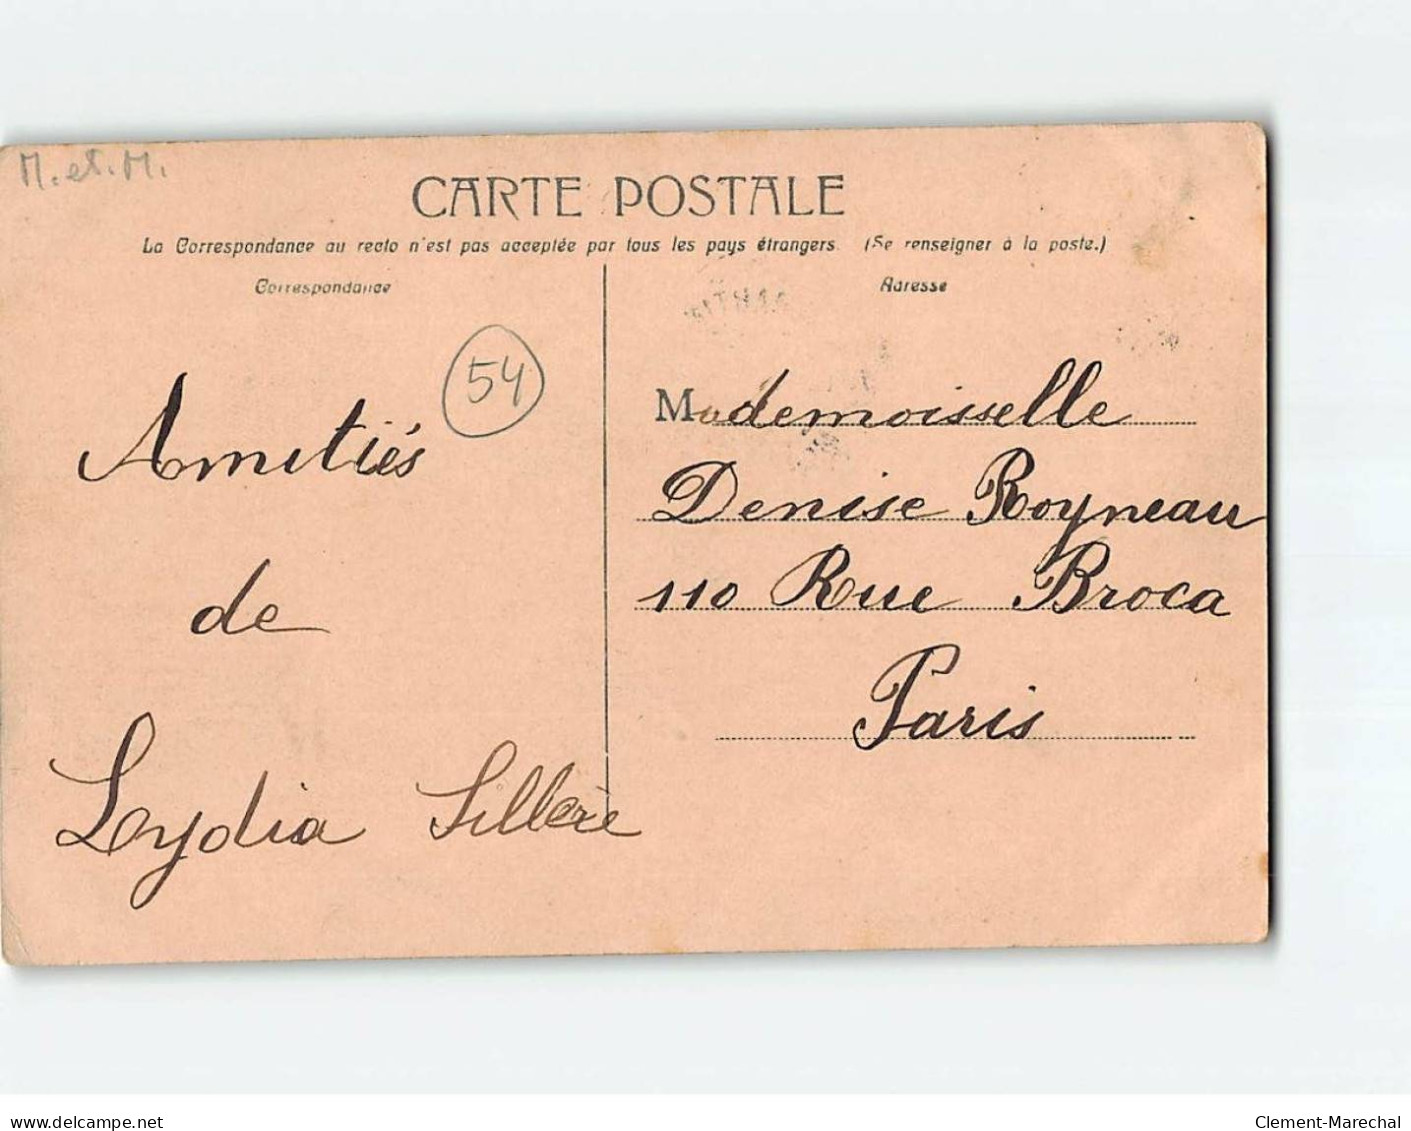 M. et. M.
CARTE POSTALE
La Correspondance au recto n'est pas acceptée par tous les pays étrangers. (Se renseigner à la poste.)
Correspondance
Adresse
54
Amitiés
de
Lydia Sillère
Mademoisselle
Denise Royneau
110 Rue Broca
Paris
www.delcampe.net
Clement-Marechal